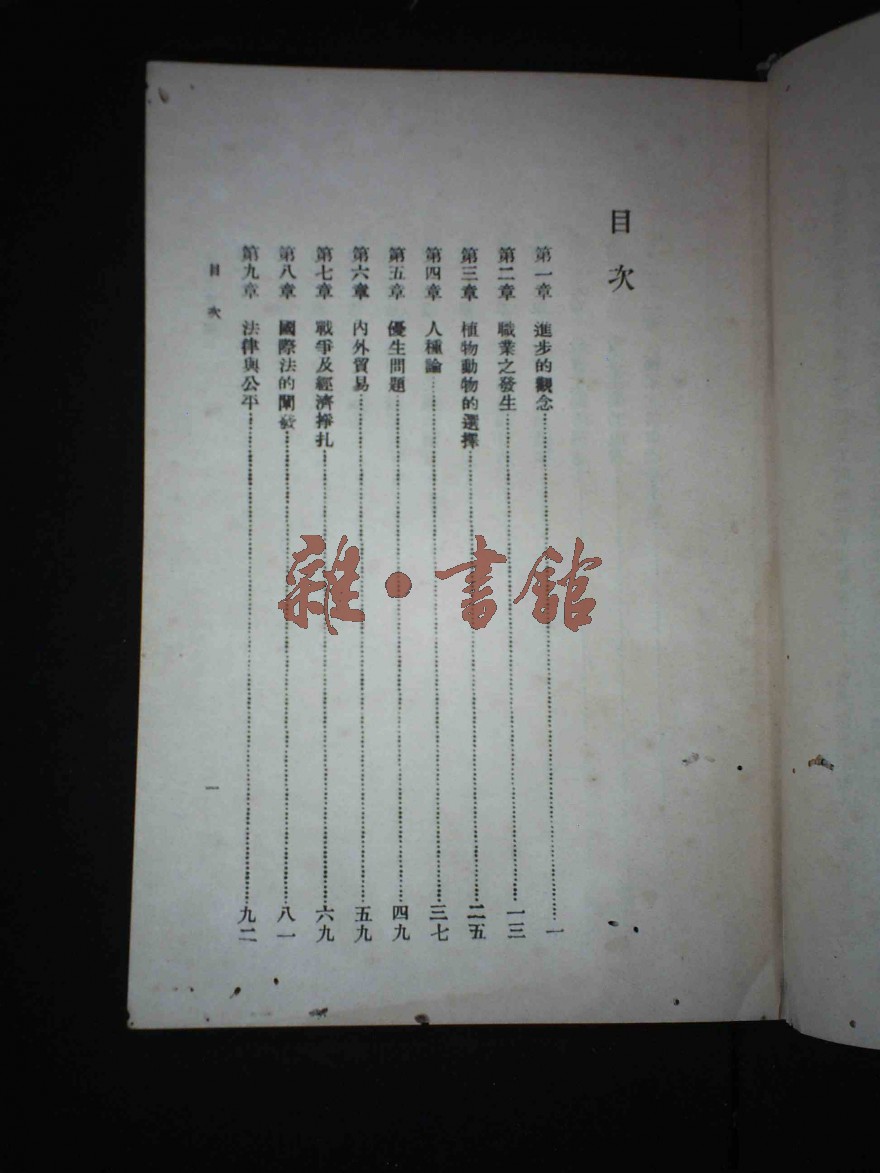 目次
第一章 進步的觀念 一
第二章 職業之發生 一三
第三章 植物動物的選擇 二五
第四章 人種論 三七
第五章 優生問題 四九
第六章 內外貿易 五九
第七章 戰爭及經濟掙扎 六九
第八章 國際法的闡發 八一
第九章 法律與公平 九二
目次 一
雜·書館